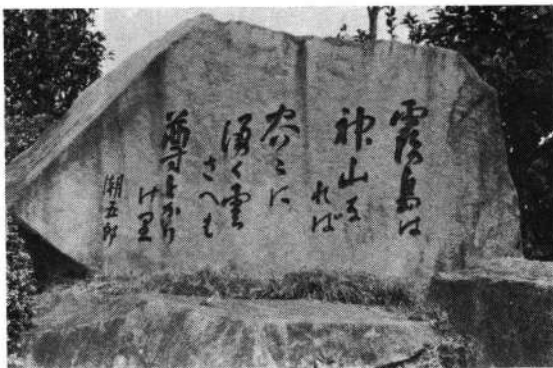 霧島は
神山な
れば
谷々に
湧く雲
さへも
尊とかり
け里
潮五郎